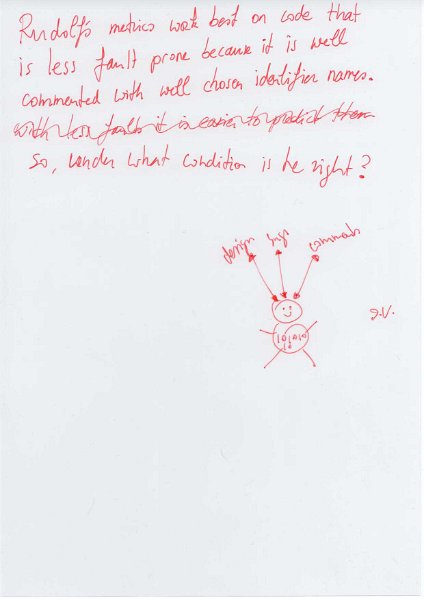 Rudolf's metrics work best on code that
is less fault prone because it is well
commented with well chosen identifier names.
with less faults it is easier to predict them
So, under what condition is he right?
design bugs comments
J.V.